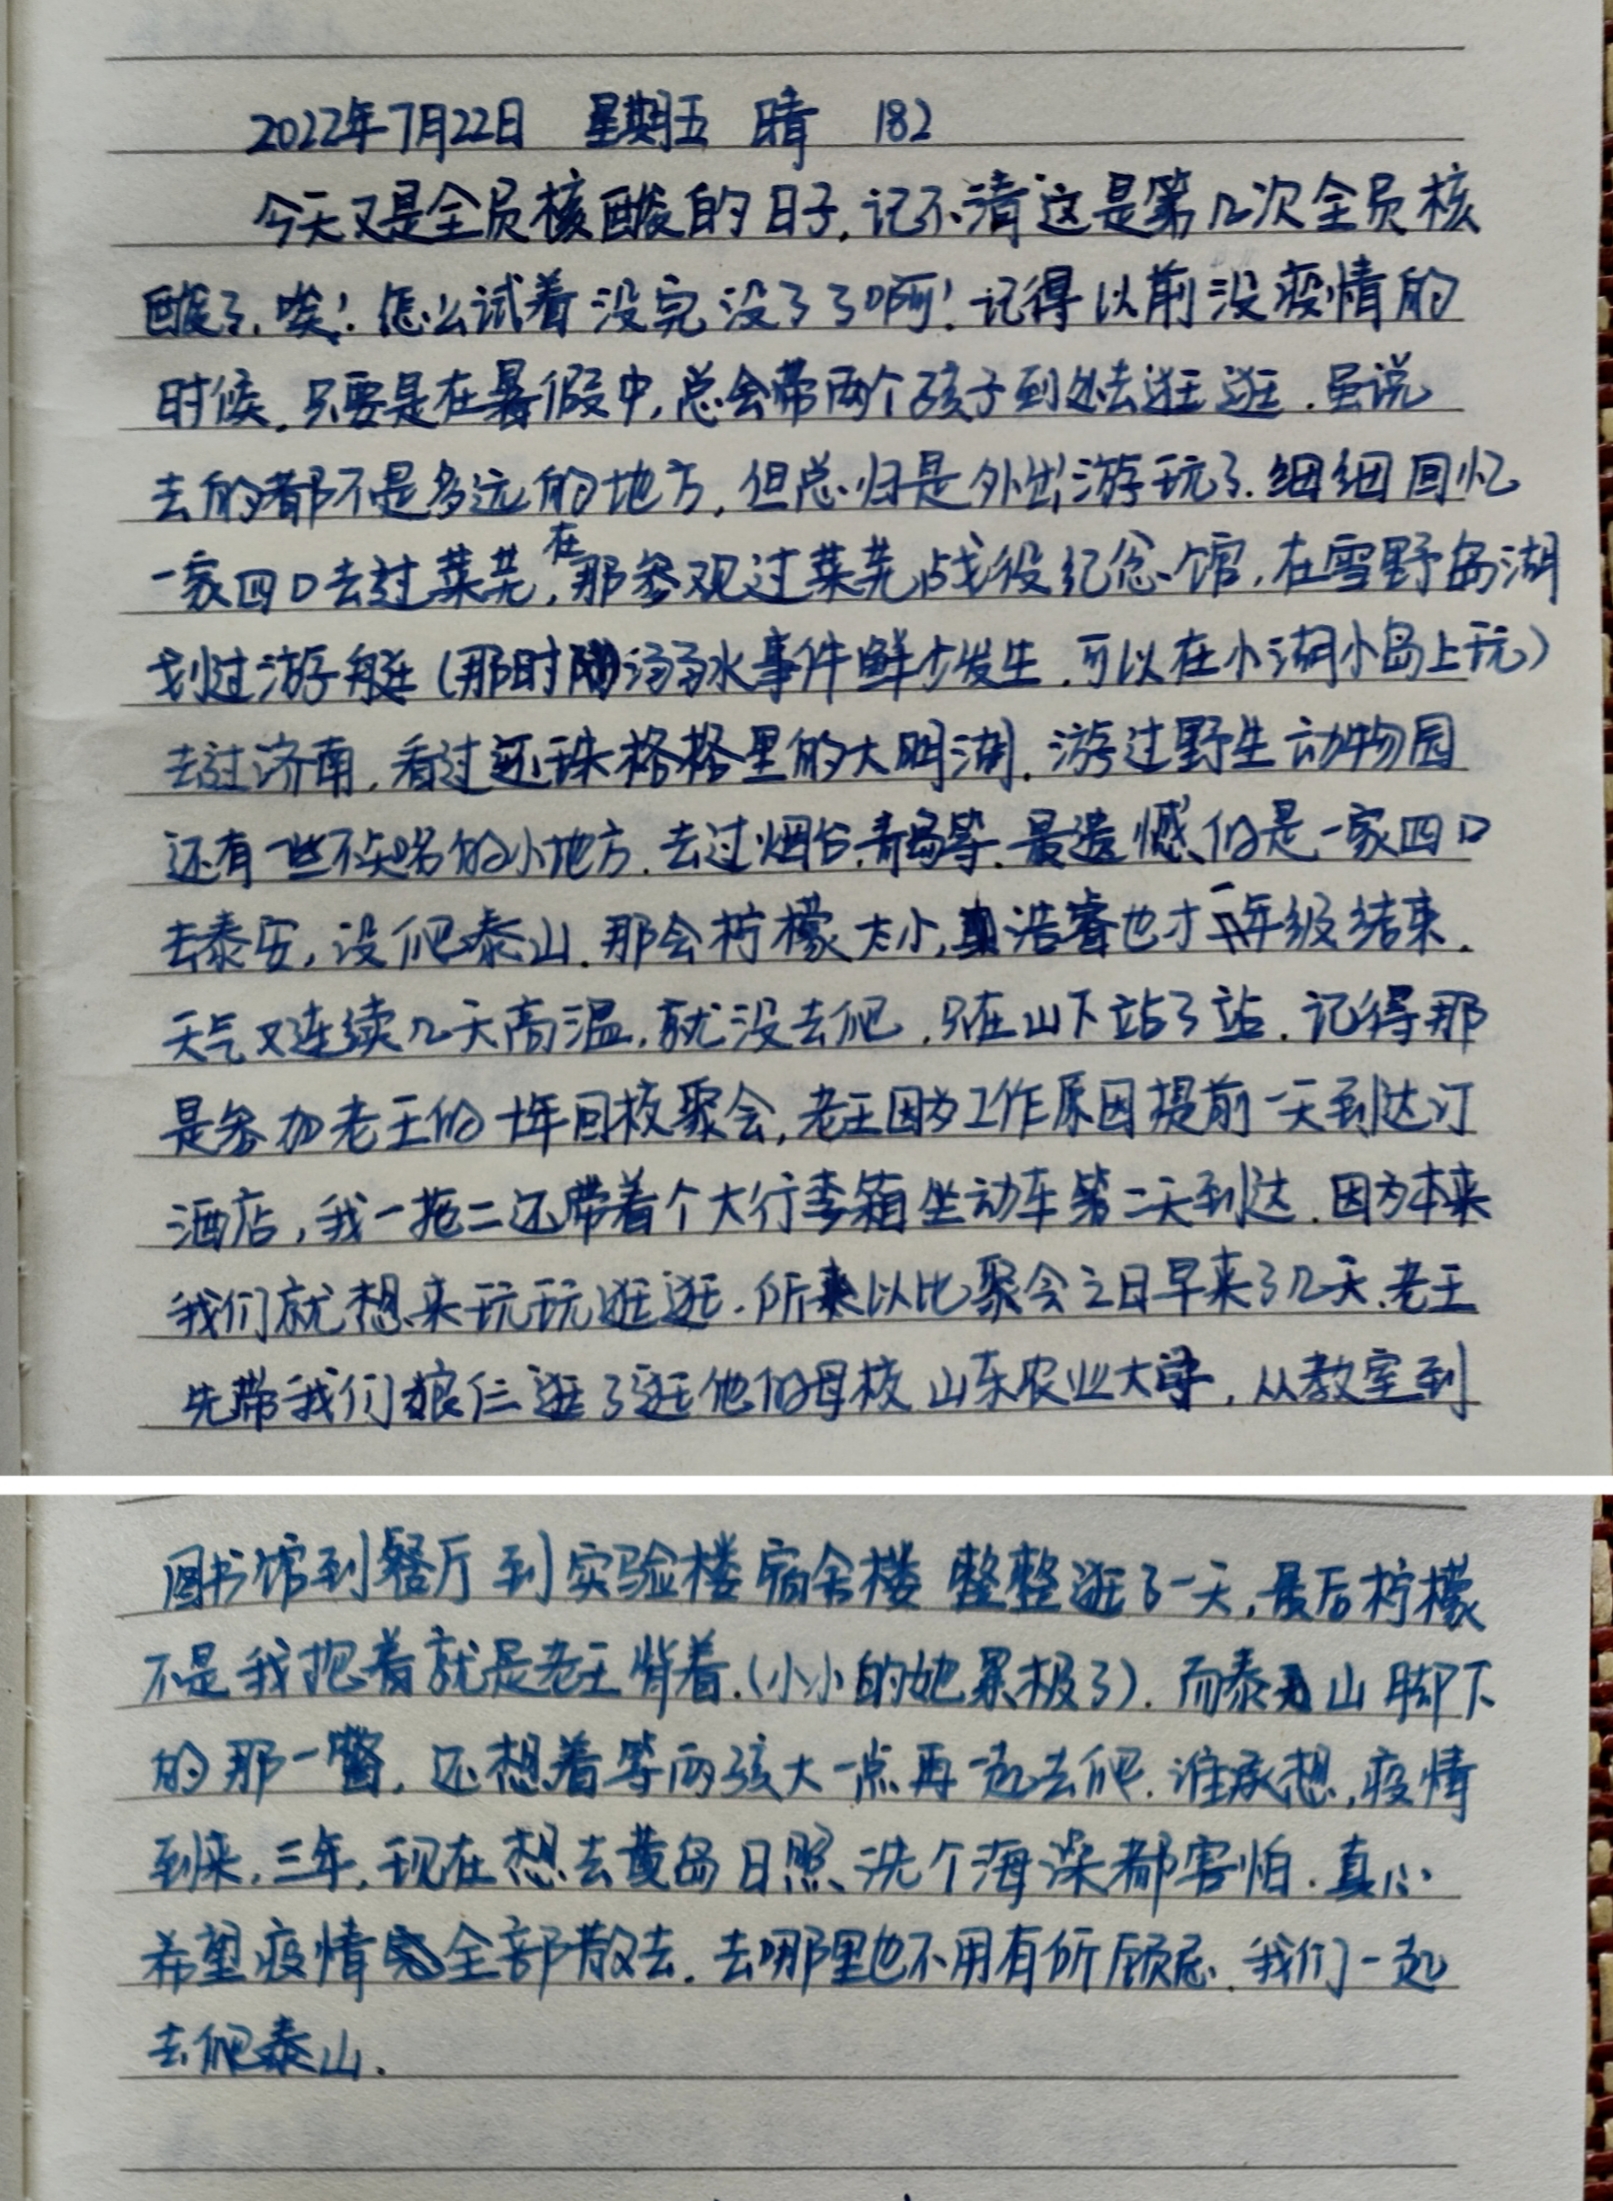 2022年7月22日 星期五 晴 182
今天又是全员核酸的日子,记不清这是第几次全员核
酸了,唉!怎么试着没完没了了啊!记得以前没疫情的
时候,只要是在暑假中,总会带两个孩子到处去逛逛.虽说
去的都不是多远的地方,但总归是外出游玩了.细细回忆
一家四口去过莱芜,在那参观过莱芜战役纪念馆,在雪野岛湖
划过游艇(那时溺水事件鲜少发生.可以在小湖小岛上玩)
去过济南,看过还珠格格里的大明湖.游过野生动物园
还有一些不知名的小地方.去过烟台.青岛等.最遗憾的是一家四口
去泰安,没爬泰山.那会柠檬太小,浩睿也才一年级结束.
天气又连续几天高温,就没去爬.只在山下站了站.记得那
是参加老王的十年回校聚会,老王因为工作原因提前一天到达订
酒店,我一拖二还带着个大行李箱坐动车第二天到达.因为本来
我们就想来玩玩逛逛.所以比聚会之日早来了几天.老王
先带我们娘仨逛了逛他的母校山东农业大学,从教室到
图书馆到餐厅到实验楼宿舍楼整整逛了一天,最后柠檬
不是我抱着就是老王背着.(小小的她累极了).而泰山脚下
的那一瞥,还想着等两孩大一点再一起去爬.谁承想,疫情
到来,三年,现在想去黄岛日照洗个海澡都害怕.真心
希望疫情全部散去.去哪里也不用有所顾忌.我们一起
去爬泰山.